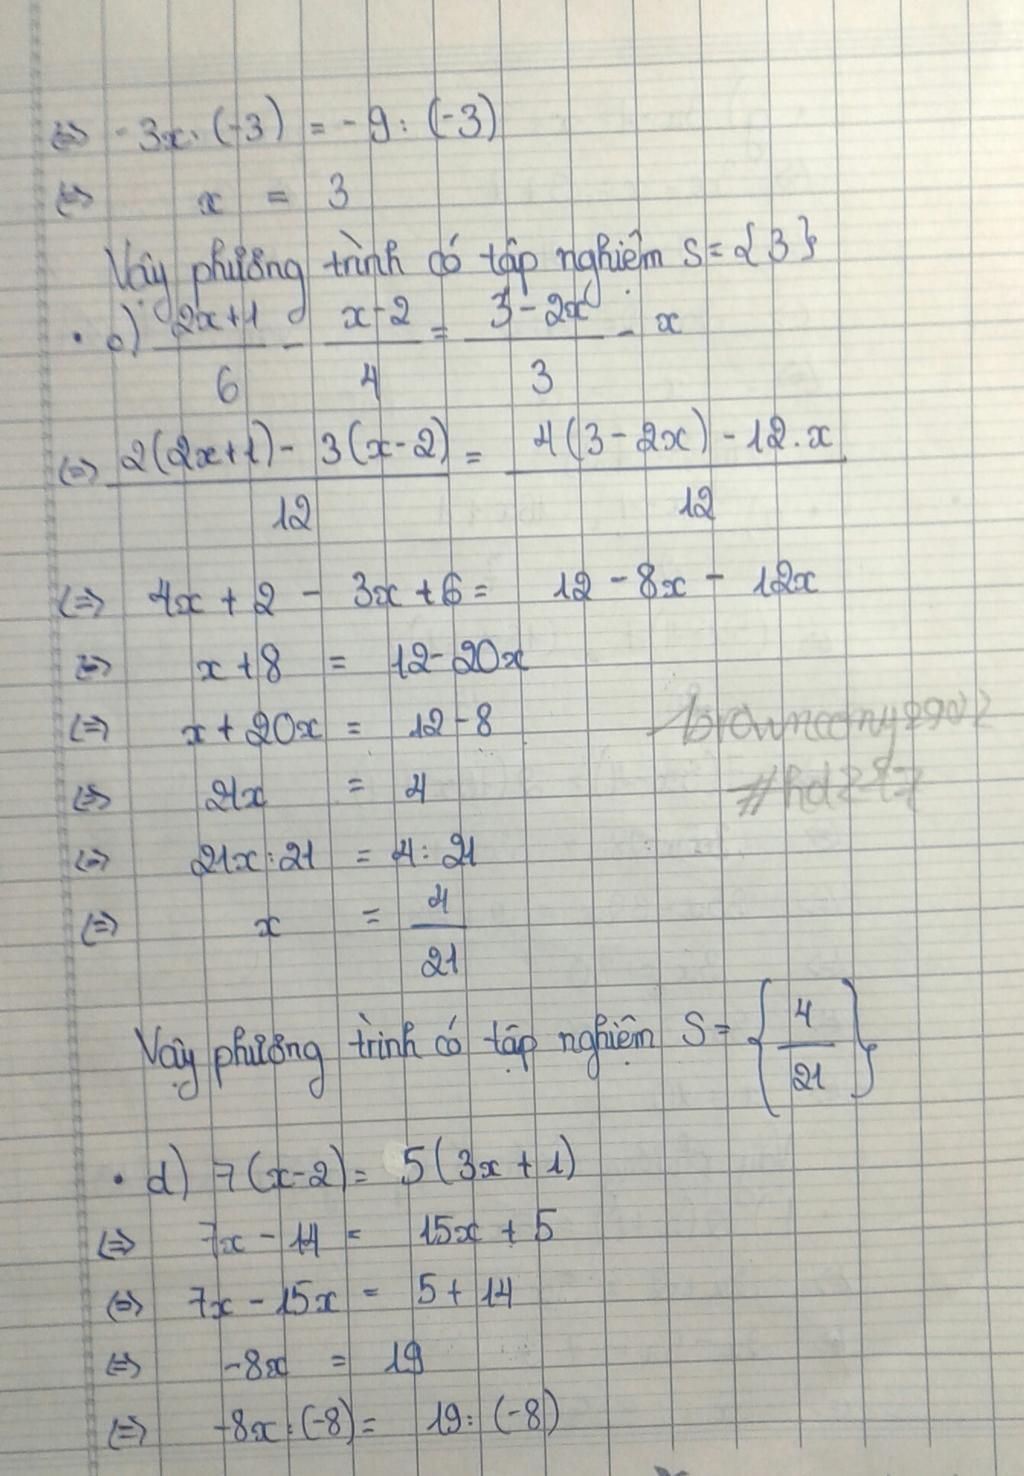 ⇔ -3x : (-3) = -9 : (-3)
⇔ x = 3
Vậy phương trình có tập nghiệm S = {3}
• c) (2x+1)/6 - (x-2)/4 = (3-2x)/3 - x
⇔ (2(2x+1) - 3(x-2))/12 = (4(3-2x) - 12.x)/12
⇔ 4x + 2 - 3x + 6 = 12 - 8x - 12x
⇔ x + 8 = 12 - 20x
⇔ x + 20x = 12 - 8
⇔ 21x = 4
⇔ 21x : 21 = 4 : 21
⇔ x = 4/21
Vậy phương trình có tập nghiệm S = {4/21}
• d) 7(x-2) = 5(3x+1)
⇔ 7x - 14 = 15x + 5
⇔ 7x - 15x = 5 + 14
⇔ -8x = 19
⇔ -8x : (-8) = 19 : (-8)